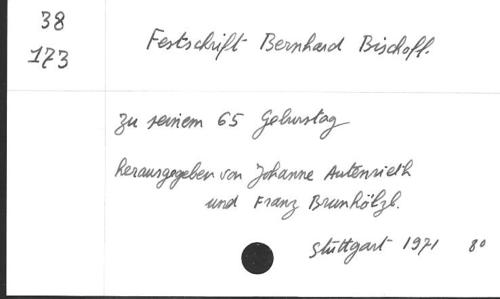 38
173
Festschrift Bernhard Bischoff.
zu seinem 65 Geburstag
herausgegeben von Johanne Autenrieth
und Franz Brunhölzl.
Stuttgart 1971 8°